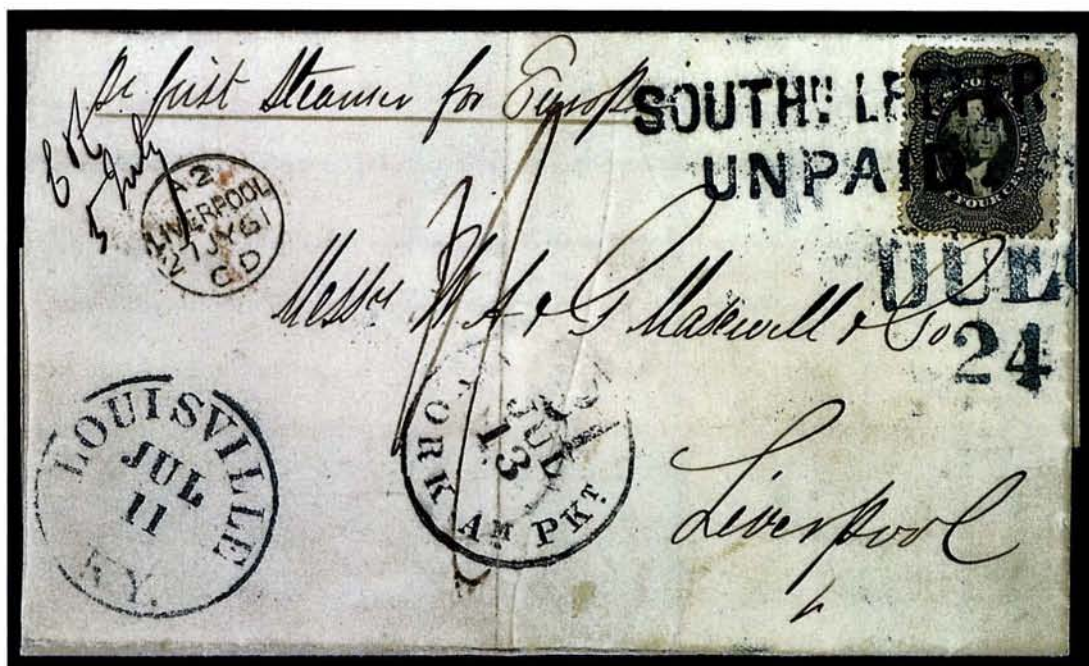 first Steamer for Europe
SOUTHN LETTER
UNPAID
FOUR CENTS
5 July
A2
LIVERPOOL
JY61
CD
DUE
24
Messrs W A & G Maxwell & Co
Liverpool
LOUISVILLE
JUL
11
KY.
YORK AM PKT.
JUL
13